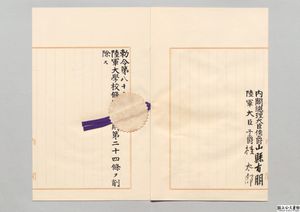 内閣總理大臣侯爵山縣有朋
陸軍大臣子爵桂太郎
勅令第八十
陸軍大學校條 第二十四條ヲ削
除ス
国立公文書館